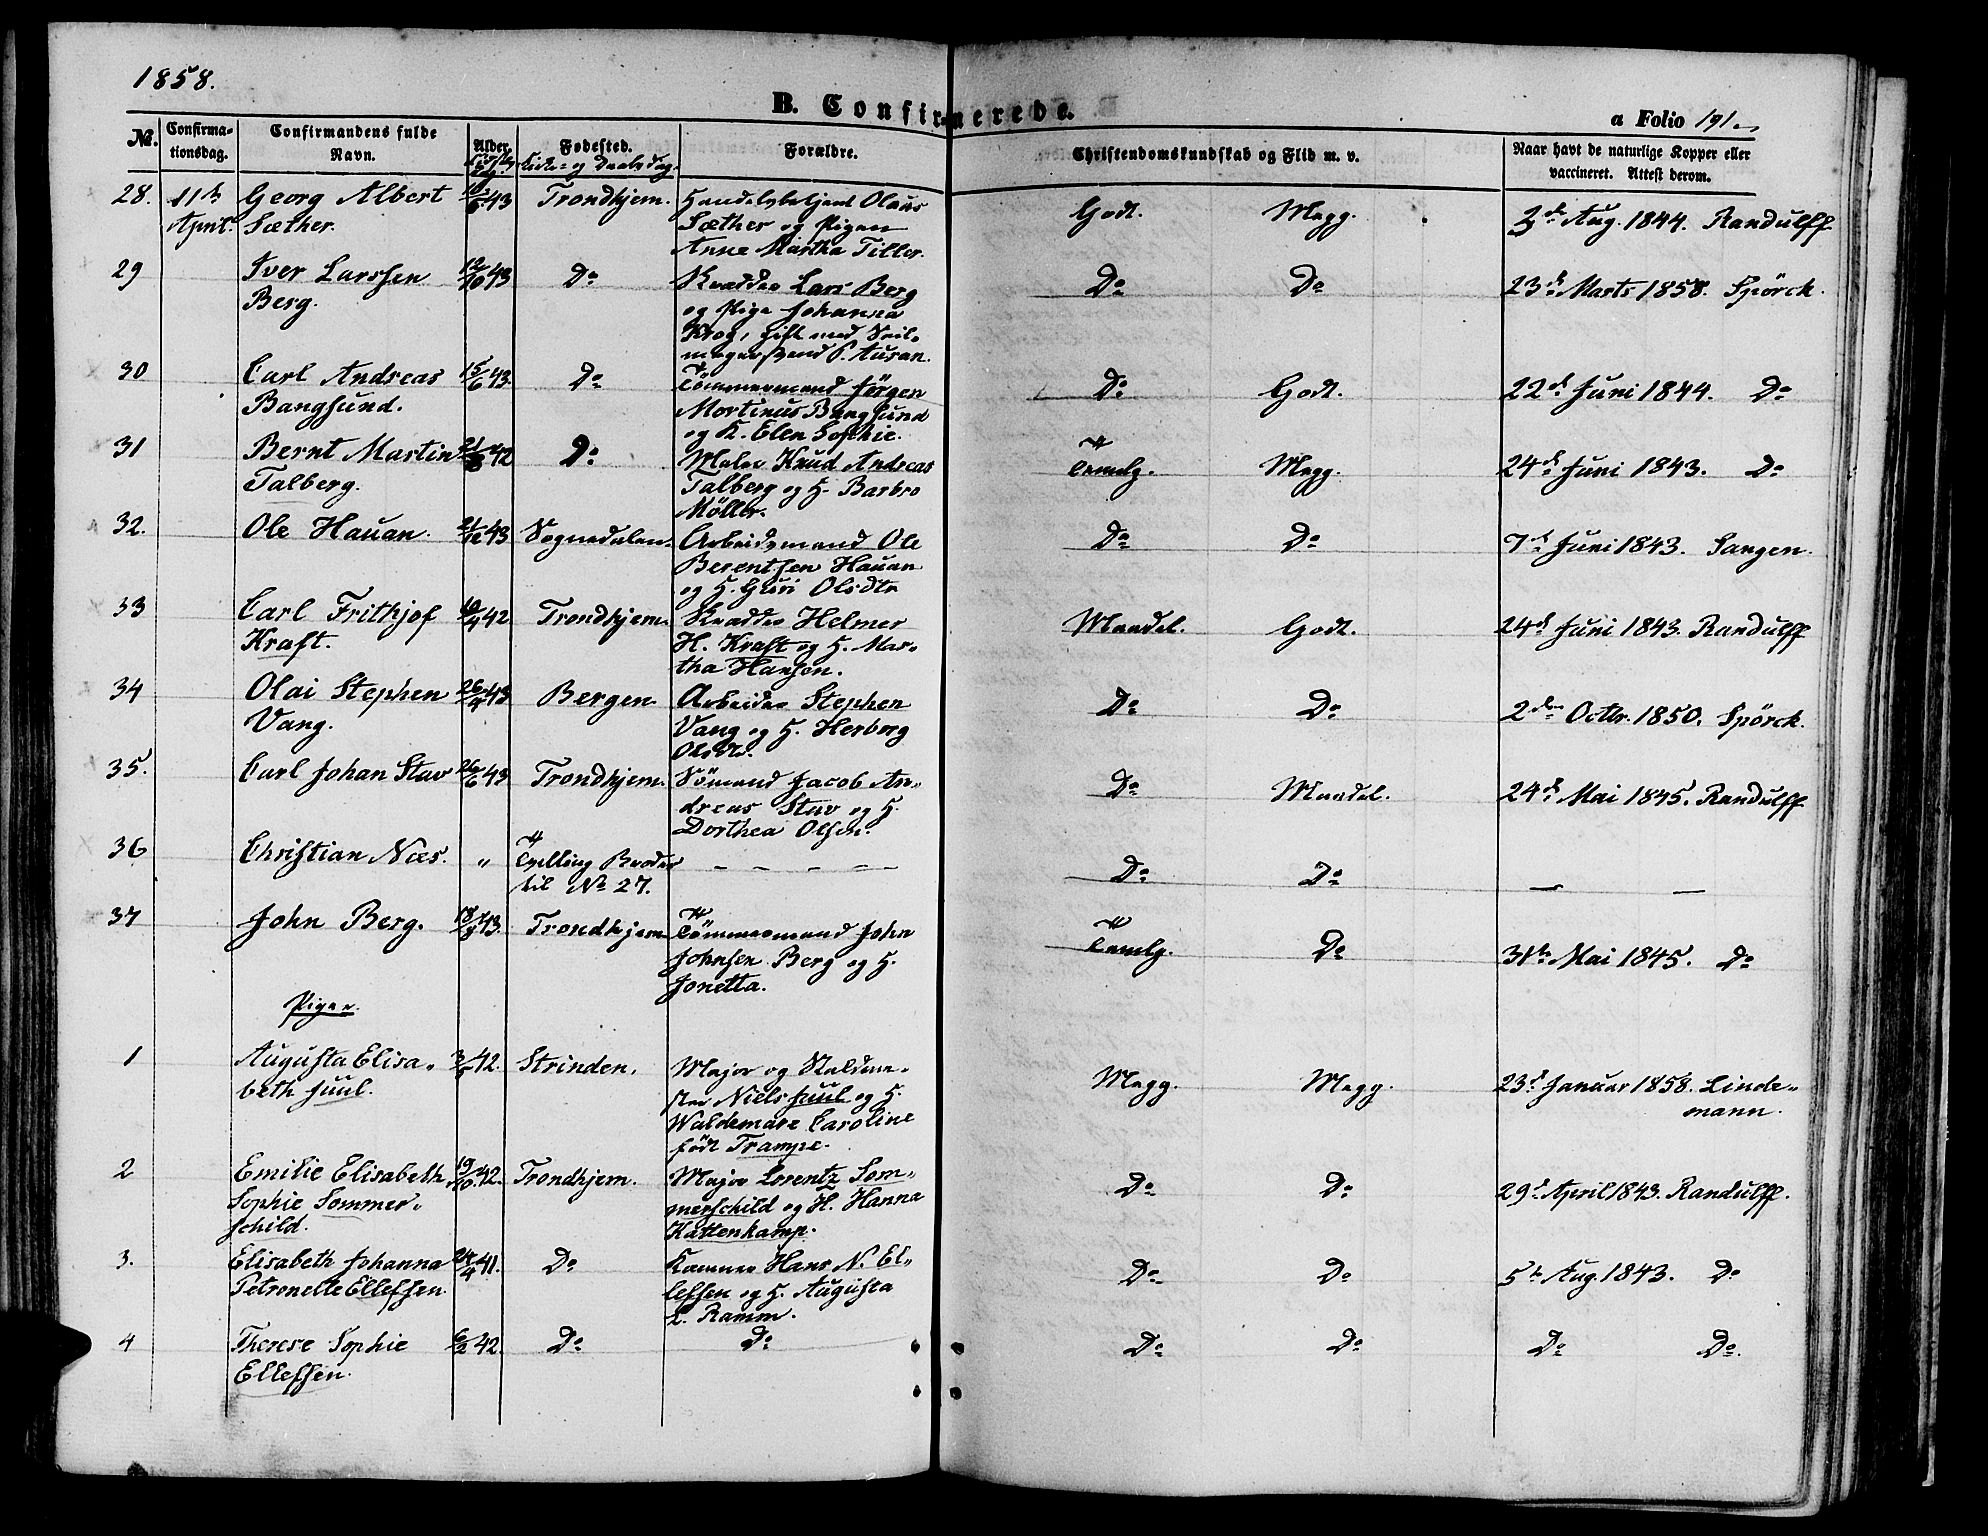 1858.
B. Confirmerede.
a Folio 191.
No.
Confirma-
tionsdag.
Confirmandens fulde
Navn.
Alder.
Fødested.
Forældre.
Christendomskundskab og Flid m. v.
Naar havt de naturlige Kopper eller
vaccineret. Attest derom.
28. 11te Georg Albert 43 Trondhjem. Handelsbetjent Olaus Godt. Megg. 3d Aug. 1844. Randulff.
April. Sæther. Sæther og Pigen
Anne Martha Tiller.
29 Iver Larssen 12/10 43 Do Skrædder Lars Berg Do Do 23d Marts 1858. Spörck.
Berg. og Pige Johanna
Krog, gift med Seil-
magersvend P. Ausan.
30 Carl Andreas 15/6 43 Do Tömmermand Jörgen Do Godt. 22d Juni 1844. Do
Bangsund. Mortinus Bangsund
og K. Elen Sophie.
31 Bernt Martin 42 Do Maler Knud Andreas Temlg. Megg. 24d Juni 1843. Do
Talberg. Talberg og H. Barbro
Möller.
32. Ole Hauan. 43 Sognedalen. Arbeidsmand Ole Do Do 7d Juni 1843. Sangen.
Berentsen Hauan
og H. Guri Olsdtr
33 Carl Frithjof 42 Trondhjem. Skrædder Helmer Maadel. Godt. 24d Juni 1843. Randulff
Kraft. H. Kraft og H. Mar-
tha Hansen.
34 Olai Stephen 43 Bergen. Arbeider Stephen Do Do 2den Octbr. 1850. Spörck.
Vang. Vang og H. Herborg
Olsdtr.
35. Carl Johan Stav 26/6 43 Trondhjem. Sömand Jacob An- Do Maadel. 24d Mai 1845. Randulff
dreas Stav og H.
Dorthea Olsen.
36 Christian Næs. " Tvilling Broder — — — — — Do Do — —
til No 27.
37 John Berg. 43. Trondhjem Tömmermand John Temlg. Do 31te Mai 1845. Do
Johnsen Berg og H.
Jonetta.
Piger.
1 Augusta Elisa- 42. Strinden. Major og Staldme- Megg. Megg. 23d Januar 1858. Linde-
beth Juul. ster Niels Juul og H. mann.
Waldemare Caroline
födt Trampe.
2 Emilie Elisabeth 19/10 42. Trondhjem. Major Lorentz Som- Do Do 29d April 1843. Randulff.
Sophie Sommer- merschild og H. Hanna
schild. Kattenkamp.
3. Elisabeth Johanna 24/4 41. Do Hans N. El- Do Do 5te Aug. 1843. Do
Petronelle Ellefsen. lefsen og H. Augusta
L. Ramm.
4 Therese Sophie 6/2 42. Do Do Do Do Do Do.
Ellefsen.